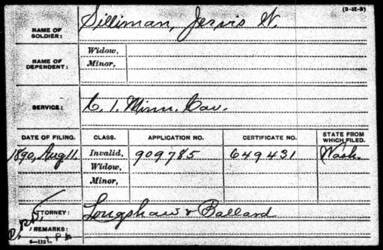 (3-12-5)
NAME OF SOLDIER: Silliman, Jarvis W.
NAME OF DEPENDENT: Widow,
Minor,
SERVICE: C. 1. Minn. Cav.
DATE OF FILING. CLASS. APPLICATION NO. CERTIFICATE NO. STATE FROM WHICH FILED.
1890, Aug 11. Invalid, 909785 649431 Wash.
Widow,
Minor,
ATTORNEY: Longshaw & Ballard
REMARKS: